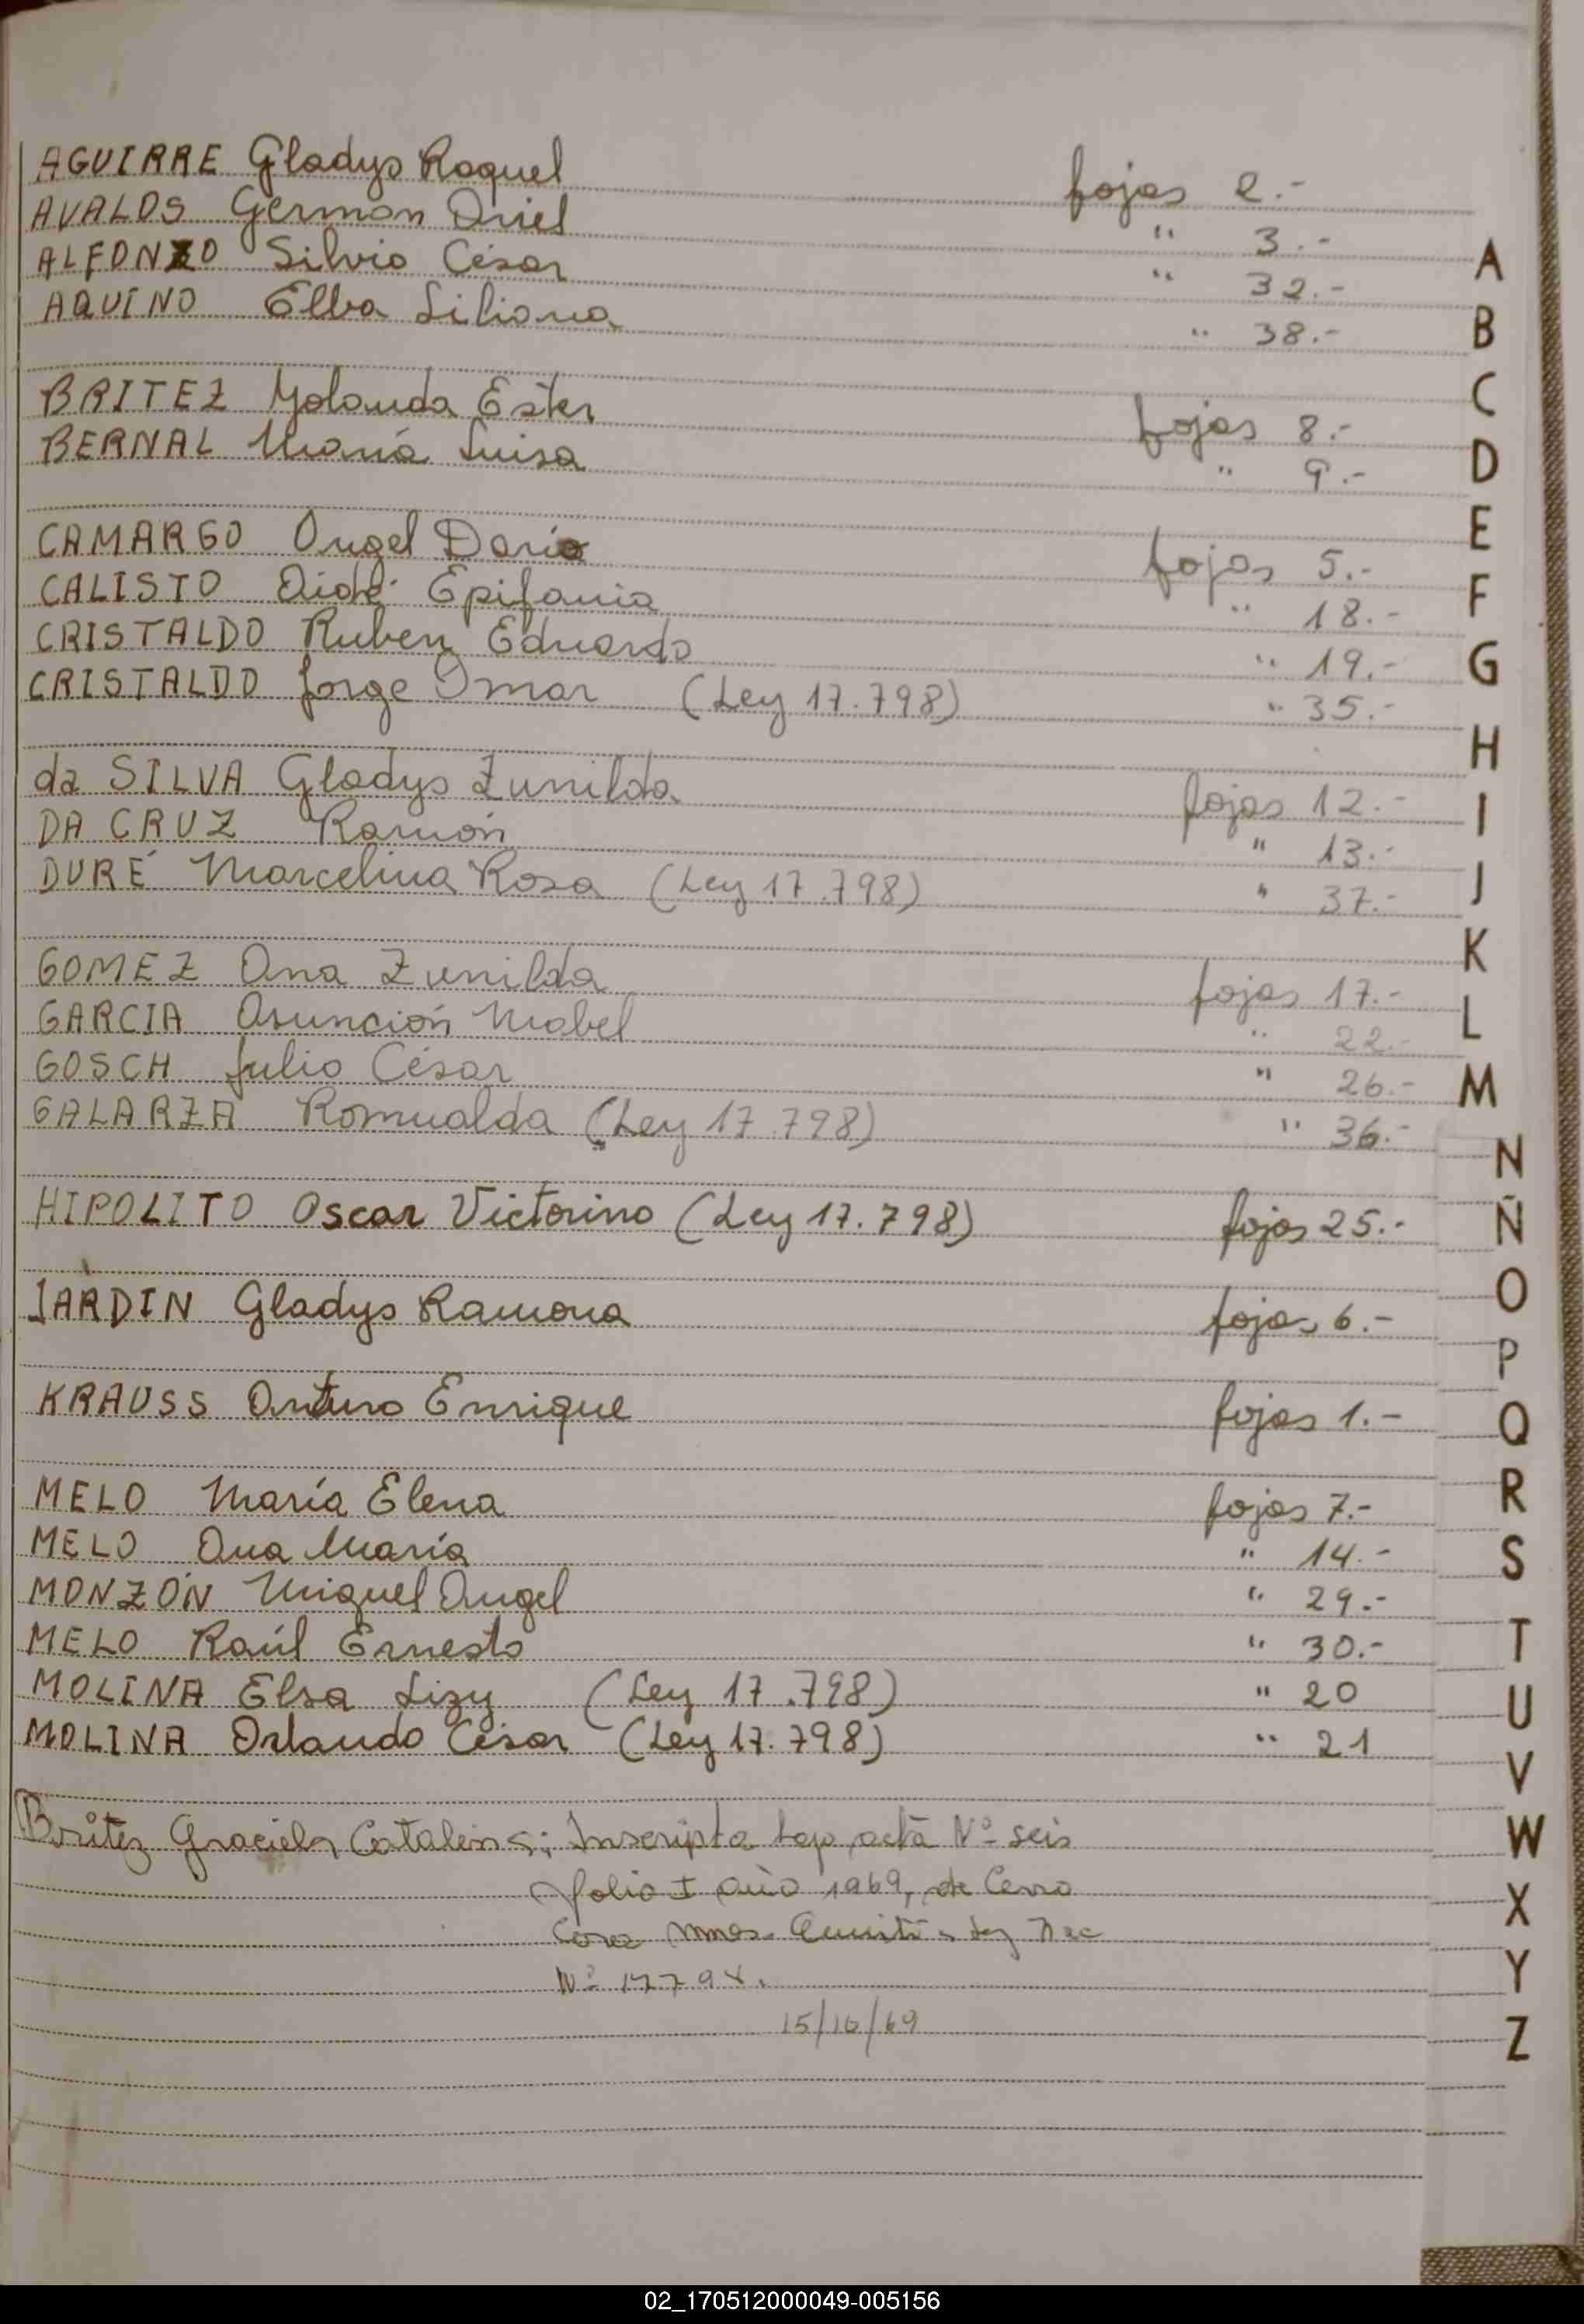 AGUIRRE Gladys Raquel fojas 2.-
AVALOS German Oriel " 3.-
ALFONZO Silvio César " 32.-
AQUINO Elba Liliana " 38.-
BRITEZ Yolanda Ester fojas 8.-
BERNAL María Luisa " 9.-
CAMARGO Angel Dario fojas 5.-
CALISTO Aidé Epifania " 18.-
CRISTALDO Ruben Eduardo " 19.-
CRISTALDO Jorge Omar (Ley 17.798) " 35.-
da SILVA Gladys Zunilda fojas 12.-
DA CRUZ Ramón " 13.-
DURÉ Marcelina Rosa (Ley 17.798) " 37.-
GOMEZ Ana Zunilda fojas 17.-
GARCIA Asunción Mabel " 22.-
GOSCH Julio César " 26.-
GALARZA Romualda (Ley 17.798) " 36.-
HIPOLITO Oscar Victorino (Ley 17.798) fojas 25.-
JARDIN Gladys Ramona fojas 6.-
KRAUSS Arturo Enrique fojas 1.-
MELO María Elena fojas 7.-
MELO Ana María " 14.-
MONZÓN Miguel Angel " 29.-
MELO Raúl Ernesto " 30.-
MOLINA Elsa Lizy (Ley 17.798) " 20
MOLINA Orlando César (Ley 17.798) " 21
Britez Graciela Catalina; Inscripta bajo acta Nº seis
folio I año 1969, de Cerro
Cora Mnes.
Nº 17798.
15/10/69
A
B
C
D
E
F
G
H
I
J
K
L
M
N
Ñ
O
P
Q
R
S
T
U
V
W
X
Y
Z
02_170512000049-005156